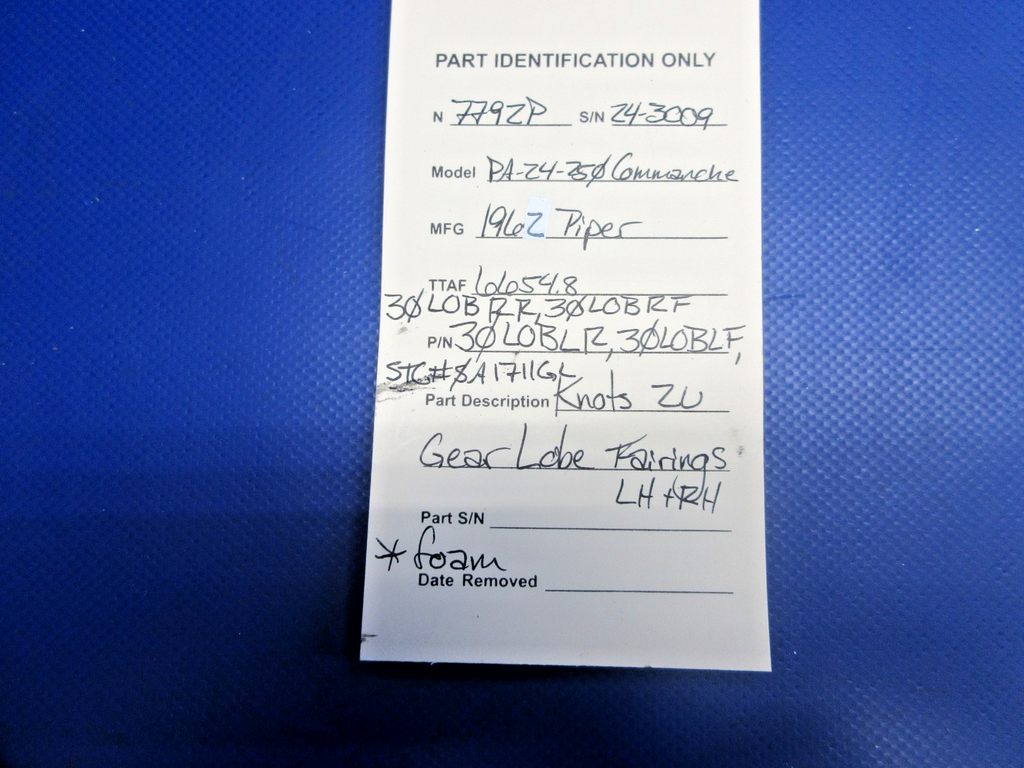 PART IDENTIFICATION ONLY
N 7792P S/N 24-3009
Model PA-24-25Ø Commanche
MFG 1962 Piper
TTAF 6654.8
3ØLOBRR, 3ØLOBRF
P/N 3ØLOBLR, 3ØLOBLF,
STC# SA1711GL
Part Description Knots 2U
Gear Lobe Fairings
LH + RH
Part S/N
* foam
Date Removed